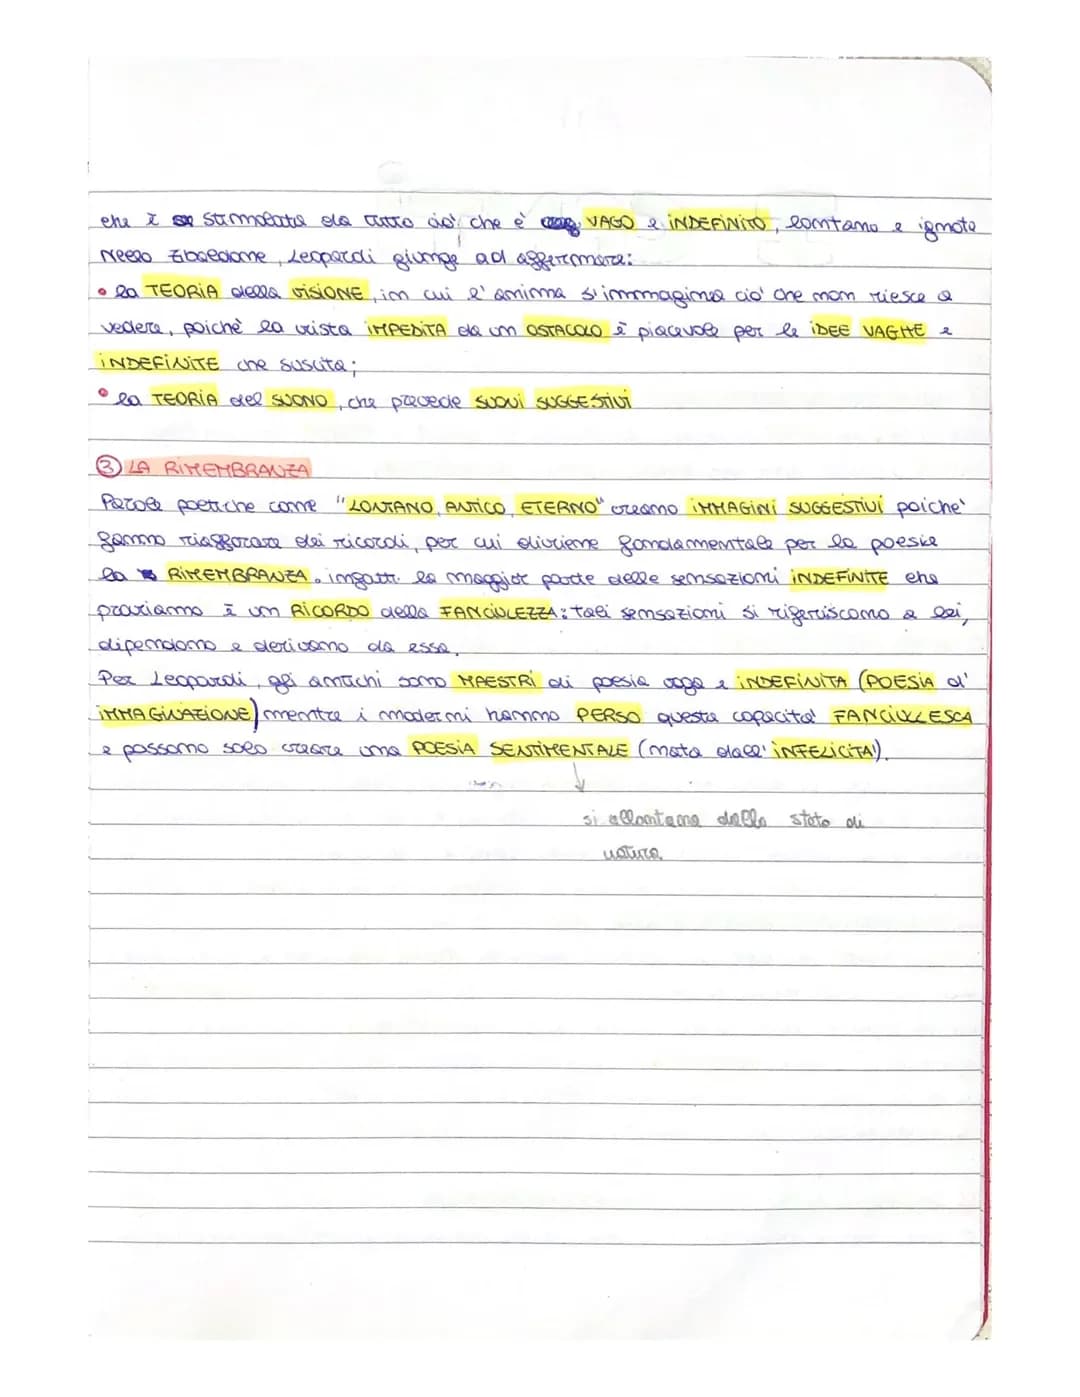 che è stimolata da tutto ciò che è VAGO e INDEFINITO, lontano e ignoto
Nello Zibaldone, Leopardi giunge ad affermare:
• la TEORIA della VISIONE, in cui l'anima s'immagina cio' che non riesce a
vedere, poichè la vista IMPEDITA da un OSTACOLO è piacevole per le IDEE VAGHE e
INDEFINITE che suscita;
• la TEORIA del SUONO, che prevede SUONI SUGGESTIVI
③ LA RIMEMBRANZA
Parole poetiche come "LONTANO, ANTICO, ETERNO" creano IMMAGINI SUGGESTIVI poiche'
fanno riaffiorare dei ricordi, per cui diviene fondamentale per la poesia
la RIMEMBRANZA. infatti la maggior parte delle sensazioni INDEFINITE che
proviamo è un RICORDO della FANCIULEZZA: tali sensazioni si riferiscono a lei,
dipendono e derivano da essa.
Per Leopardi, gli antichi sono MAESTRI di poesia vaga e INDEFINITA (POESIA d'
IMMAGINAZIONE) mentre i moderni hanno PERSO questa capacita' FANCIULLESCA
e possono solo creare una POESIA SENTIMENTALE (nata dall' INFELICITA').
si allontana dallo stato di
natura.